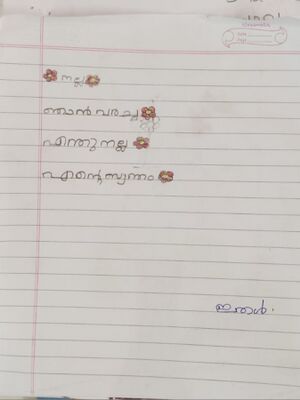 നല്ല
ഞാൻ വരച്ച
എന്തു നല്ല
എന്റെ സ്വന്തം
ഇതൾ.